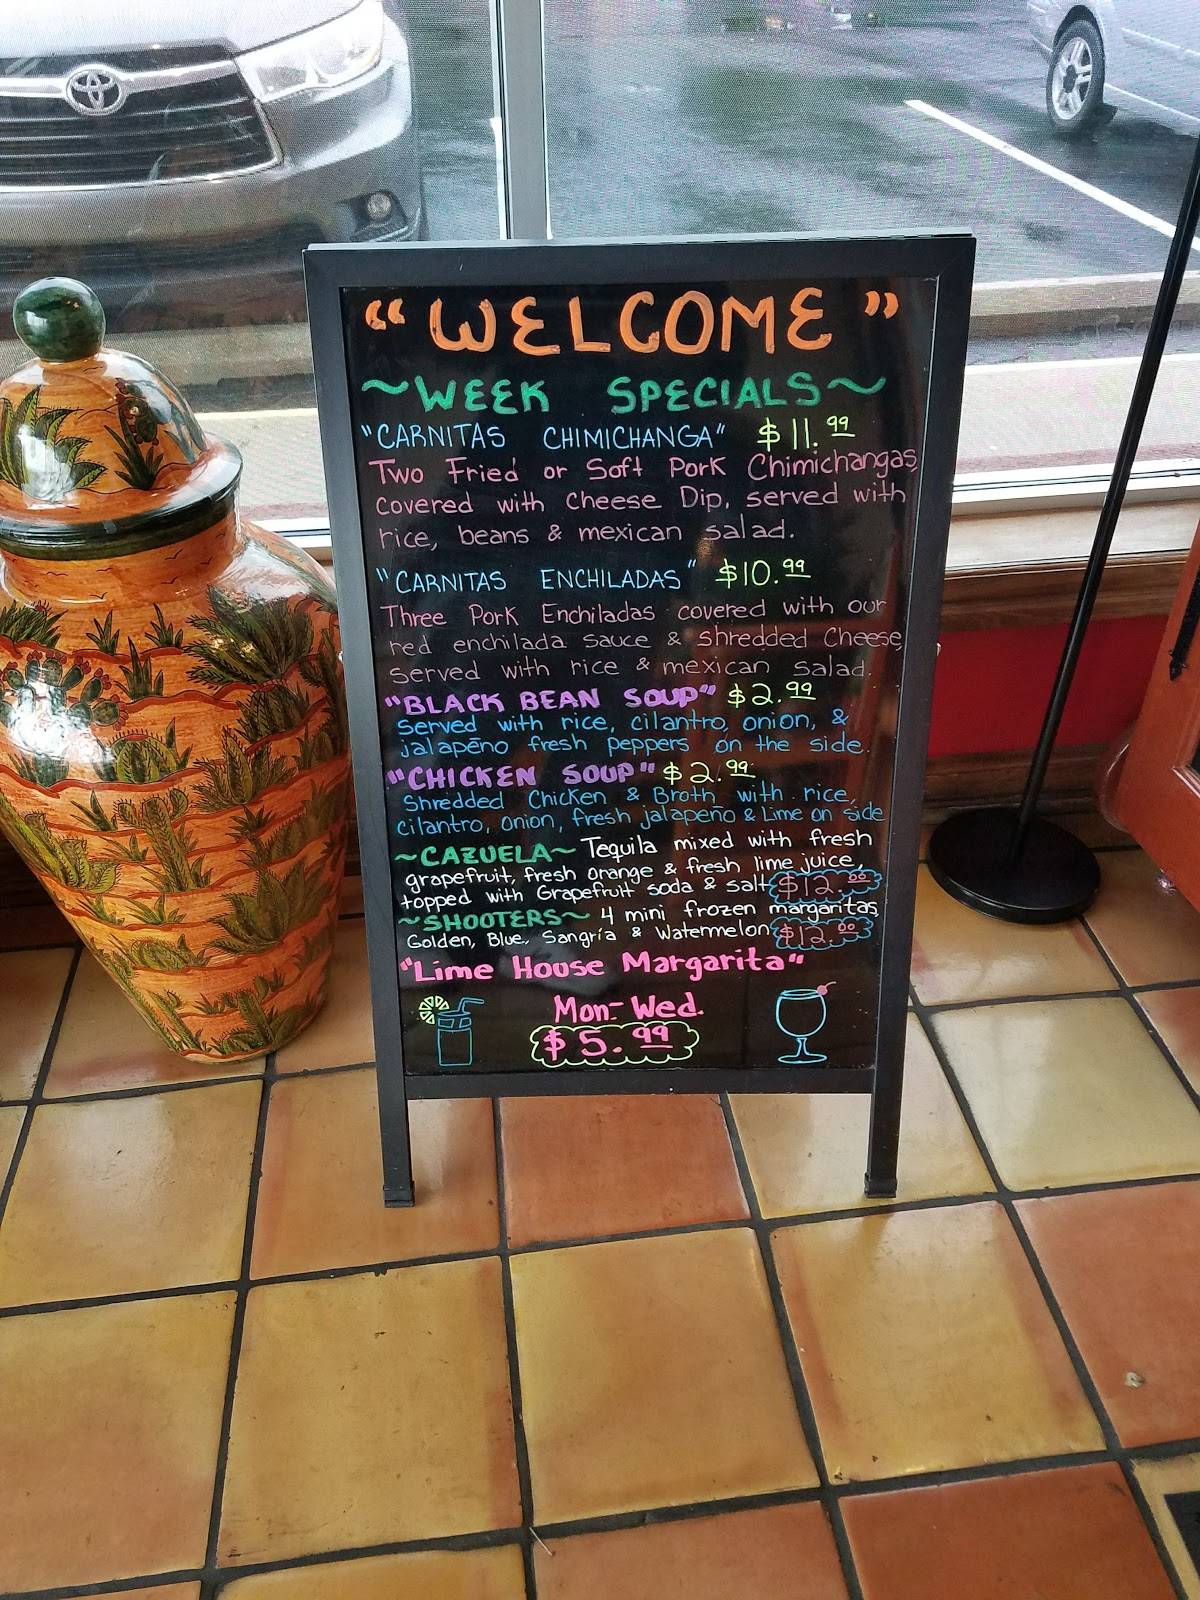 “WELCOME”
~WEEK SPECIALS~
"CARNITAS CHIMICHANGA" $11.99
Two Fried or Soft Pork Chimichangas,
covered with Cheese Dip, served with
rice, beans & mexican salad.
"CARNITAS ENCHILADAS" $10.99
Three Pork Enchiladas covered with our
red enchilada sauce & shredded Cheese,
served with rice & mexican salad.
"BLACK BEAN SOUP" $2.99
Served with rice, cilantro, onion, &
jalapeño fresh peppers on the side.
"CHICKEN SOUP" $2.99
Shredded Chicken & Broth with rice,
cilantro, onion, fresh jalapeño & Lime on side
~CAZUELA~ Tequila mixed with fresh
grapefruit, fresh orange & fresh lime juice,
topped with Grapefruit soda & salt $12.00
~SHOOTERS~ 4 mini frozen margaritas
Golden, Blue, Sangría & Watermelon $12.00
"Lime House Margarita"
Mon-Wed.
$5.99